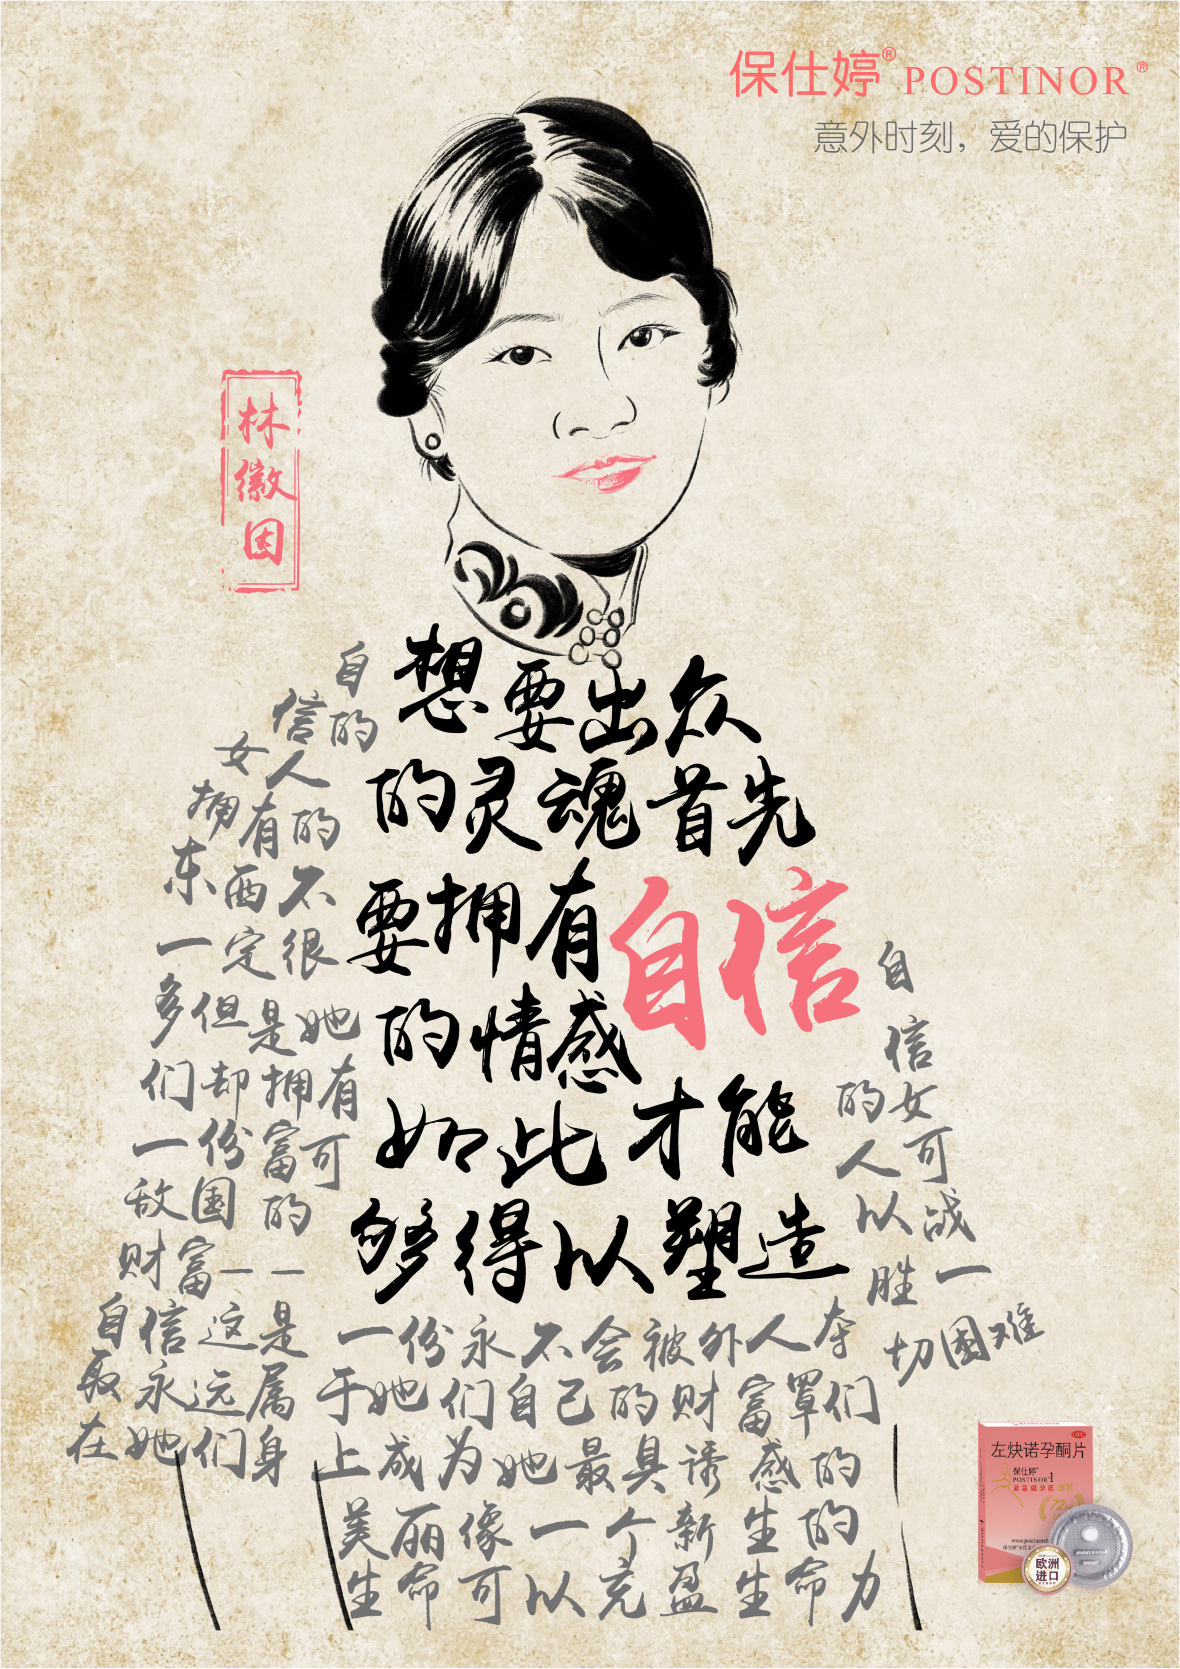 保仕婷® POSTINOR®
意外时刻，爱的保护
林徽因
想要出众
的灵魂首先
要拥有自信
的情感
如此才能
够得以塑造
自
信的
女人
拥有的
东西不
一定很
多但是她
们却拥有
一份富可
敌国的
财富——
自信这是
最永远属
在她们身
一份永不会被外人夺
于她们自己的财富罩们
上成为她最具诱感的
美丽像一个新生的
生命可以充盈生命力
自
信
的女
人可
以战
胜一
切困难
左炔诺孕酮片
保仕婷®
POSTINOR®1
紧急避孕药
72
欧洲
进口